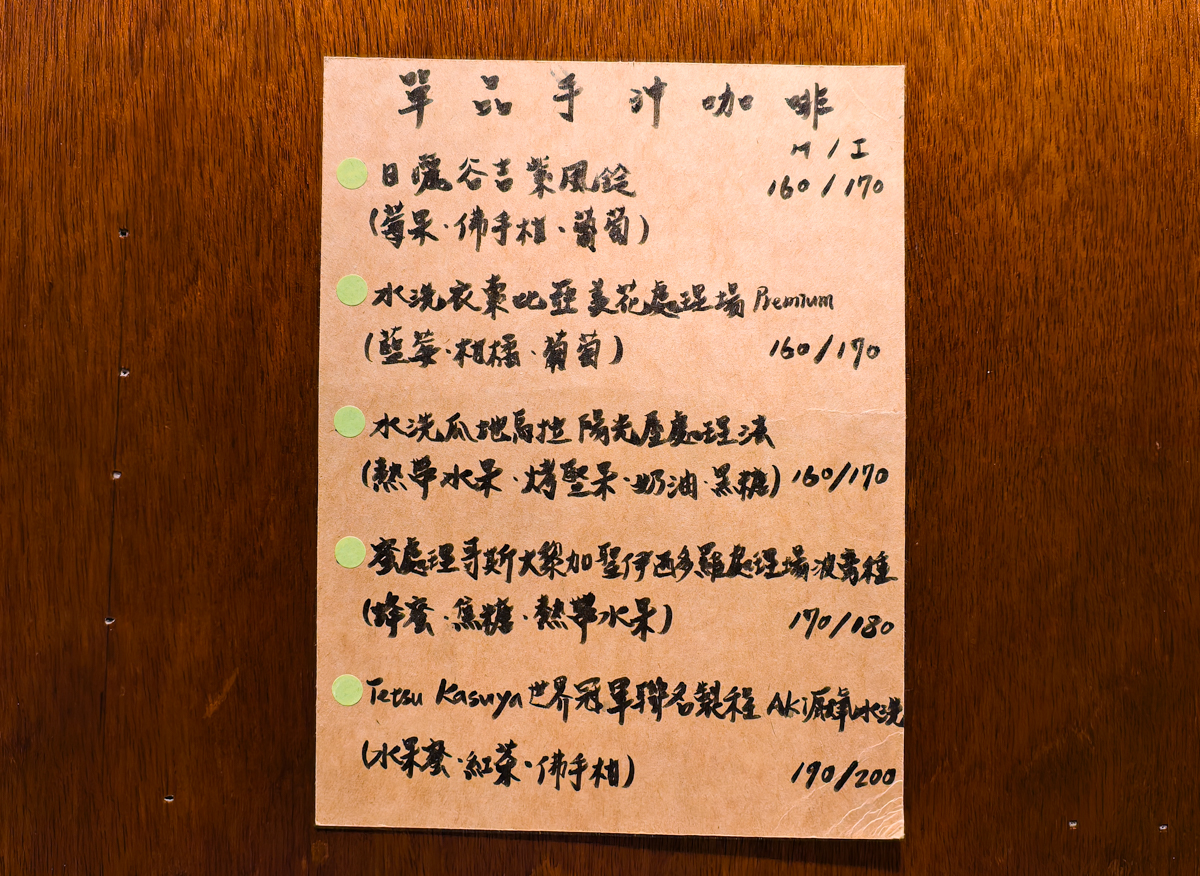 單品手沖咖啡
H / I
日曬谷吉紫風錠 160/170
(莓果·佛手柑·葡萄)
水洗衣索比亞 美花處理場 Premium
(藍莓·柑橘·葡萄) 160/170
水洗瓜地馬拉 陽光 處理法
(熱帶水果·烤堅果·奶油·黑糖) 160/170
蜜處理哥斯大黎加聖伊西多羅處理場波旁種
(蜂蜜·焦糖·熱帶水果) 170/180
Tetsu Kasuya世界冠軍聯名製程 AK 氧水洗
(水果蜜·紅茶·佛手柑) 190/200